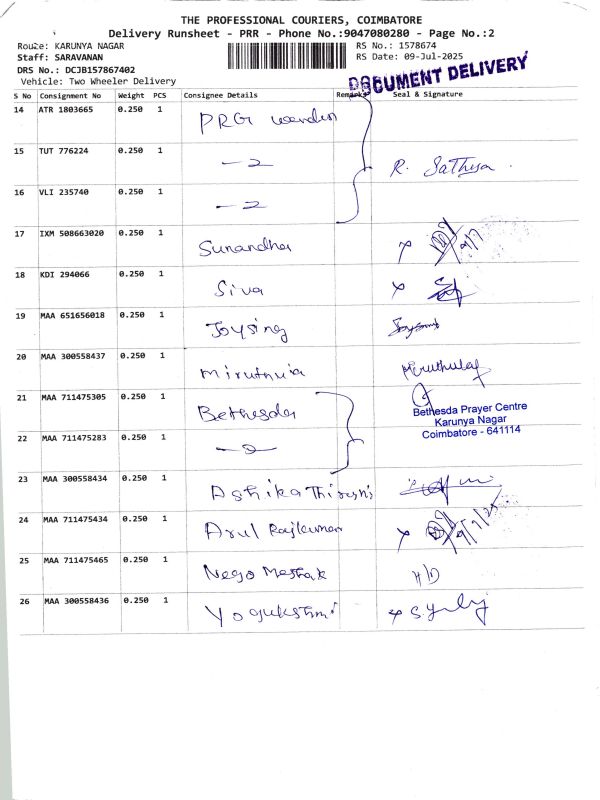 THE PROFESSIONAL COURIERS, COIMBATORE
Delivery Runsheet - PRR - Phone No.:9047080280 - Page No.:2
Route: KARUNYA NAGAR
RS No.: 1578674
Staff: SARAVANAN
RS Date: 09-Jul-2025
DRS No.: DCJB157867402
Vehicle: Two Wheeler Delivery
DOCUMENT DELIVERY
S No Consignment No Weight PCS Consignee Details Remarks Seal & Signature
14 ATR 1803665 0.250 1 PRG
15 TUT 776224 0.250 1 R. Sathiya
16 VLI 235740 0.250 1
17 IXM 508663020 0.250 1 Sunandha
18 KDI 294066 0.250 1 Siva
19 MAA 651656018 0.250 1 Joysing
20 MAA 300558437 0.250 1
21 MAA 711475305 0.250 1 Bethesda
Bethesda Prayer Centre
Karunya Nagar
Coimbatore - 641114
22 MAA 711475283 0.250 1
23 MAA 300558434 0.250 1 Ashika
24 MAA 711475434 0.250 1 Arul Rajkumar
25 MAA 711475465 0.250 1
26 MAA 300558436 0.250 1